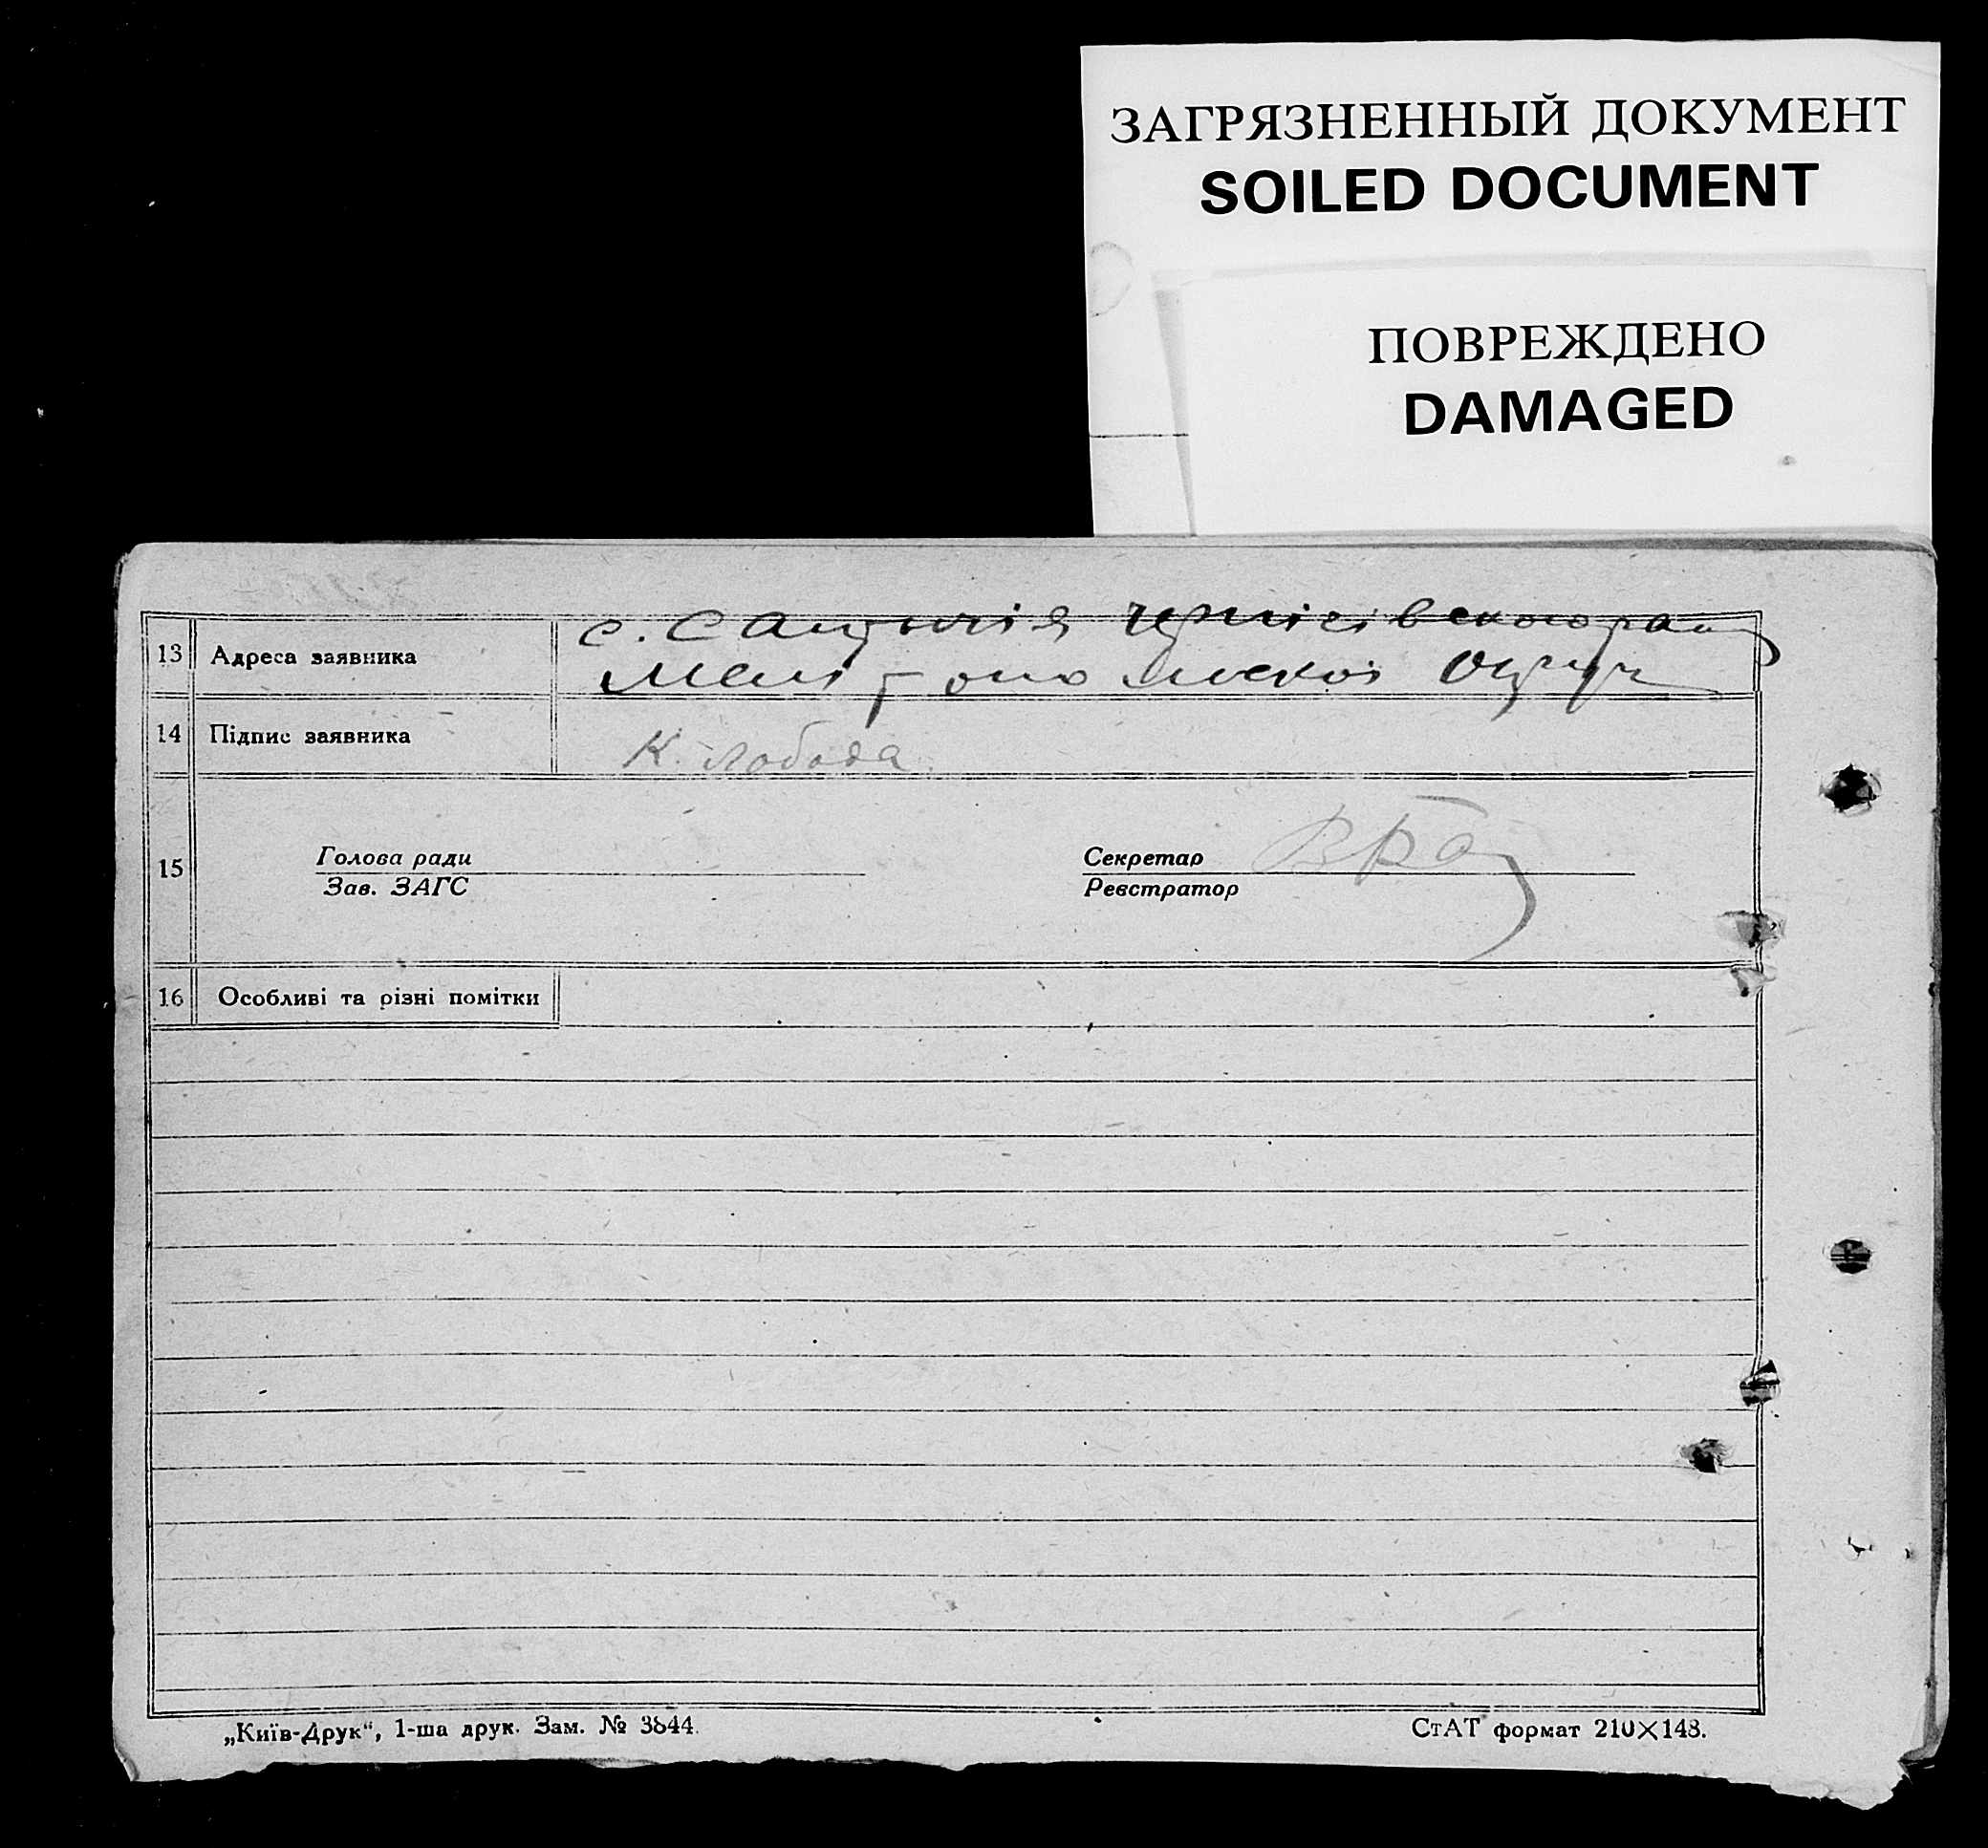 ЗАГРЯЗНЕННЫЙ ДОКУМЕНТ
SOILED DOCUMENT
ПОВРЕЖДЕНО
DAMAGED
13 Адреса заявника с. Чернігівського
Мелітопольскої Округи
14 Підпис заявника К. Лобода
15 Голова ради Секретар
Зав. ЗАГС Реєстратор
16 Особливі та різні помітки
„Київ-Друк“, 1-ша друк. Зам. № 3844. СтАТ формат 210×148.